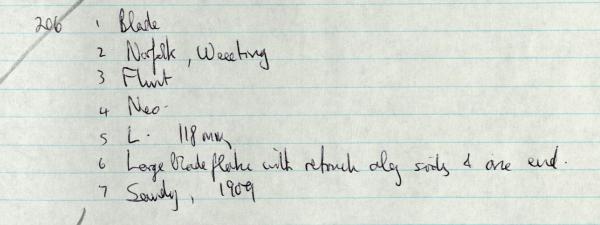 206 1 Blade
2 Norfolk, Weeting
3 Flint
4 Neo.
5 L. 118 mm
6 Large blade flake with retouch alg sides & one end.
7 Sandy, 1909